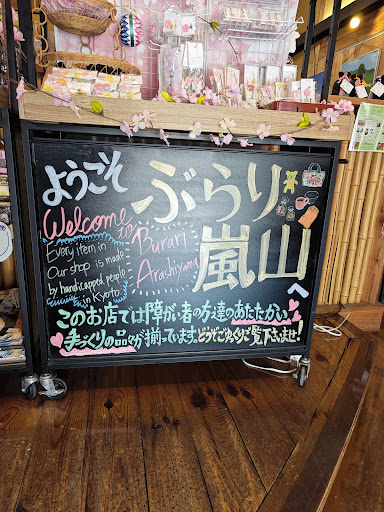 ようこそ
ぶらり
嵐山
へ
Welcome to
Burari
Arashiyama
Every item in
Our shop is made
by handicapped people
in Kyoto.
このお店では障がい者の方達のあたたかい
手づくりの品々が揃っています。どうぞごゆっくりご覧下さいませ!